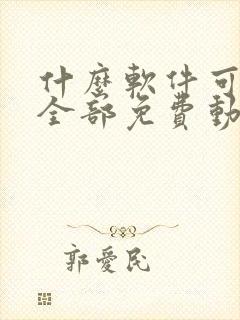 什麼軟件可
全部免費動
郭愛民